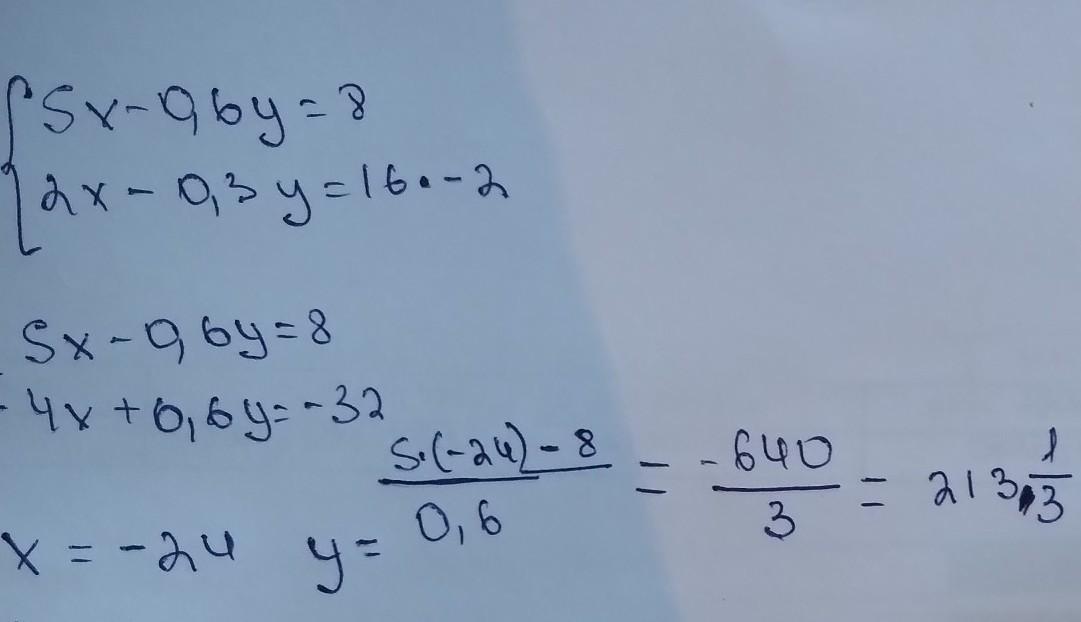 5x-0,6y=8
2x-0,3y=16·-2
5x-0,6y=8
-4x+0,6y=-32
x=-24 y= \frac{5·(-24)-8}{0,6} = \frac{-640}{3} = 213 \frac{1}{3}